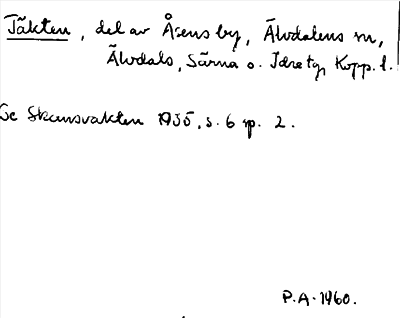 Täkten, del av Åsens by, Älvdalens sn,
Älvdals, Särna o. Idre tg, Kopp. l.
Se Skansvakten 1935, s. 6 sp. 2.
P.A. 1960.